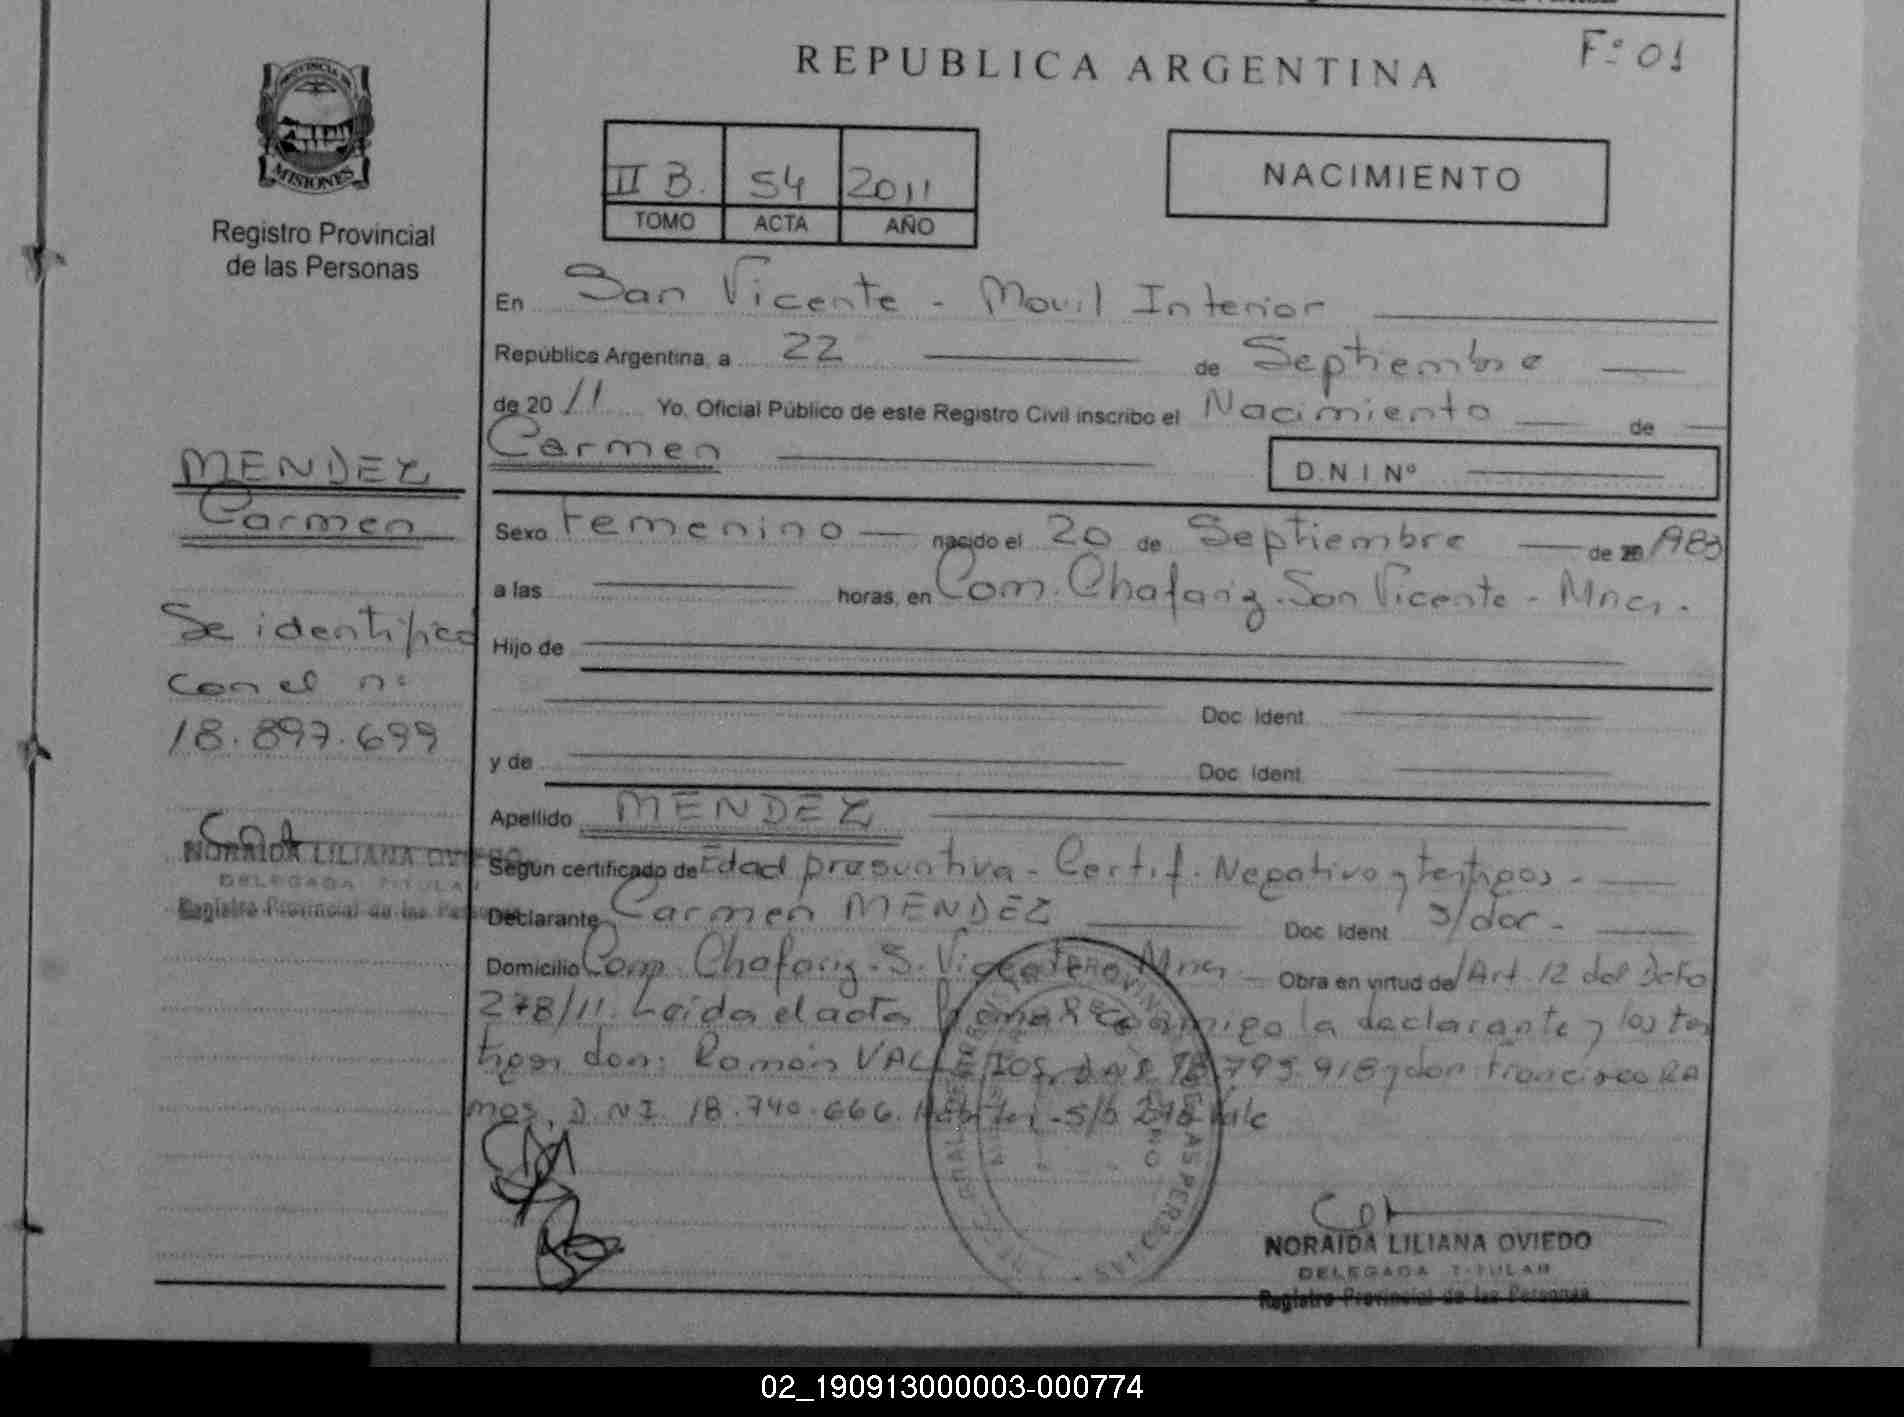 F: 01
REPUBLICA ARGENTINA
PROVINCIA DE
MISIONES
Registro Provincial
de las Personas
II B. 54 2011
TOMO ACTA AÑO
NACIMIENTO
En San Vicente - Movil Interior
República Argentina, a 22 de Septiembre
de 2011 Yo, Oficial Público de este Registro Civil inscribo el Nacimiento de
Carmen D.N.I Nº
MENDEZ
Carmen
Se identifico
con el n:
18.897.699
NORAIDA LILIANA OVIEDO
DELEGADA TITULAR
Registro Provincial de las Personas
Sexo Femenino nacido el 20 de Septiembre de 1983
a las horas, en Com. Chafariz. San Vicente - Mnes.
Hijo de
Doc Ident
y de Doc Ident
Apellido MENDEZ
Según certificado de Edad presuntiva - Certif. Negativo y testigos -
Declarante Carmen MENDEZ Doc Ident s/doc -
Domicilio Com. Chafariz. S. Vicente Mnes Obra en virtud de Art. 12 del Dcto
278/11. Leida el acta firma conmigo la declarante y los tes
tigos don: Ramón VALLEJOS, DNI 18.795.918 y don Francisco RA
mos, D.N.I. 18.740.666. S/b 278 vale
NORAIDA LILIANA OVIEDO
DELEGADA TITULAR
Registro Provincial de las Personas
02_190913000003-000774